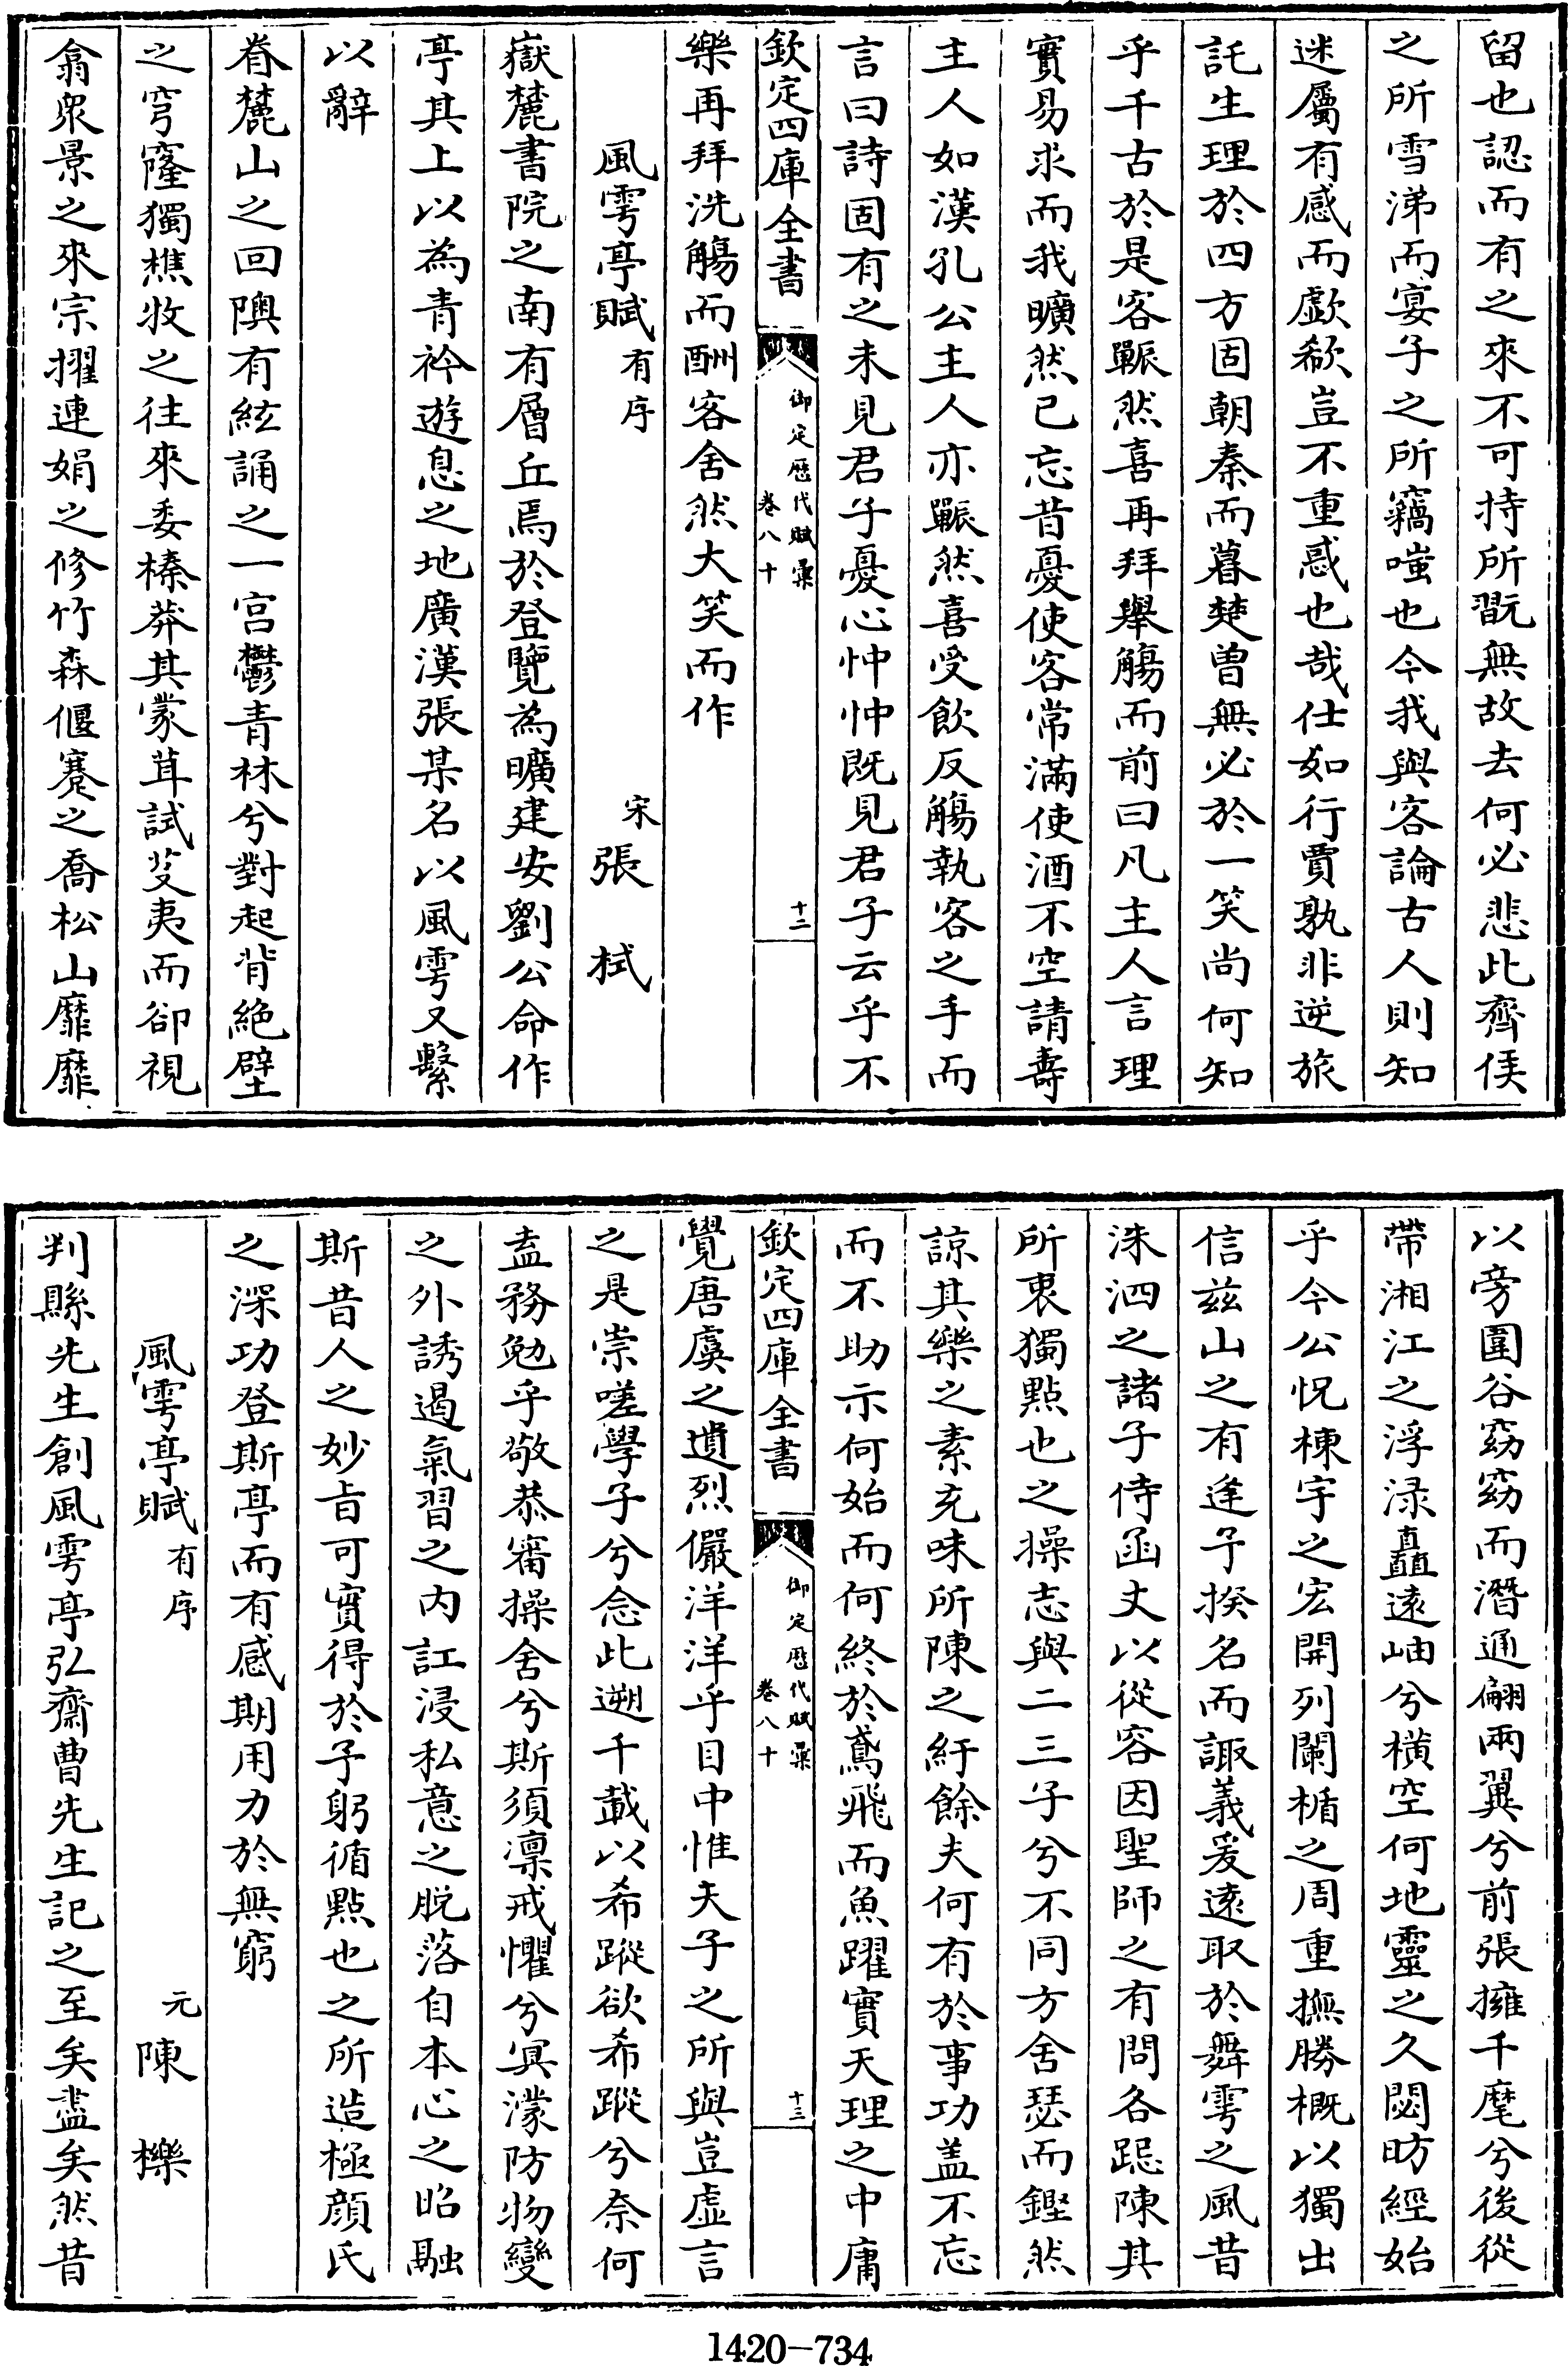 留也認而有之來不可持所翫無故去何必悲此齊侯
之所雪涕而宴子之所竊嗤也今我與客論古人則知
迷屬有感而歔欷豈不重惑也哉仕如行賈孰非逆旅
託生理於四方固朝秦而暮楚曾無必於一笑尚何知
乎千古於是客冁然喜再拜舉觴而前曰凡主人言理
實易求而我曠然已忘昔憂使客常滿使酒不空請壽
主人如漢孔公主人亦冁然喜受飲反觴執客之手而
言曰詩固有之未見君子憂心忡忡既見君子云乎不
欽定四庫全書
御定歷代賦彙
卷八十
十二
樂再拜洗觴而酬客舍然大笑而作
風雩亭賦有序
宋張栻
嶽麓書院之南有層丘焉於登覽為曠建安劉公命作
亭其上以為青衿遊息之地廣漢張某名以風雩又繫
以辭
眷麓山之回隩有絃誦之一宮鬱青林兮對起背絶壁
之穹窿獨樵牧之往來委榛莽其蒙茸試芟夷而卻視
翕衆景之來宗擢連娟之修竹森偃蹇之喬松山靡靡
以旁圍谷窈窈而潛通翩兩翼兮前張擁千麾兮後從
帶湘江之浮渌矗遠岫兮橫空何地靈之久閟昉經始
乎今公怳棟宇之宏開列闌楯之周重撫勝概以獨出
信兹山之有逢予揆名而諏義爰遠取於舞雩之風昔
洙泗之諸子侍函丈以從容因聖師之有問各跽陳其
所衷獨點也之操志與二三子兮不同方舍瑟而鏗然
諒其樂之素充味所陳之紆餘夫何有於事功盖不忘
而不助示何始而何終於鳶飛而魚躍實天理之中庸
欽定四庫全書
御定歷代賦彙
卷八十
十三
覺唐虞之遺烈儼洋洋乎目中惟夫子之所與豈虛言
之是崇嗟學子兮念此遡千載以希蹤欲希蹤兮奈何
盍務勉乎敬恭審操舍兮斯須凛戒懼兮冥濛防物變
之外誘遏氣習之内訌浸私意之脱落自本心之昭融
斯昔人之妙旨可實得於予躬循點也之所造極顔氏
之深功登斯亭而有感期用力於無窮
風雩亭賦有序
元陳櫟
判縣先生創風雩亭弘齋曹先生記之至矣盡矣然昔
1420-734